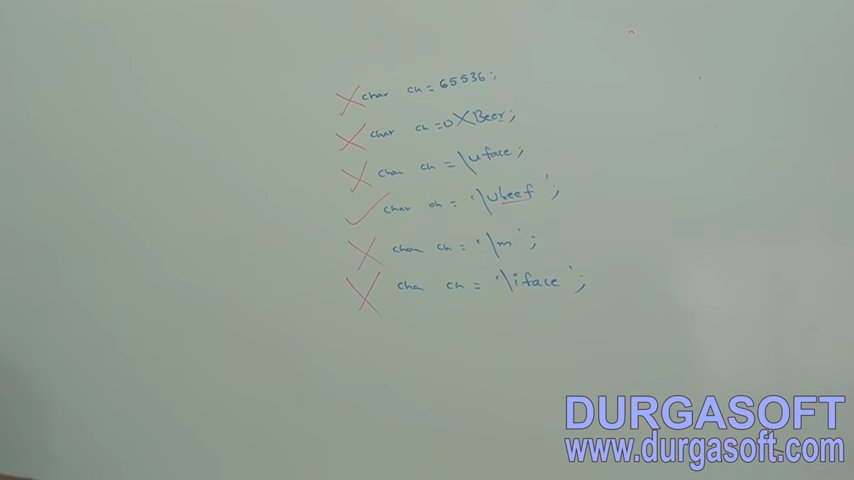 char ch = 65536;
char ch = 0XBeer;
char ch = \uface;
char ch = '\ubeef';
char ch = '\m';
char ch = '\iface';
DURGASOFT
www.durgasoft.com